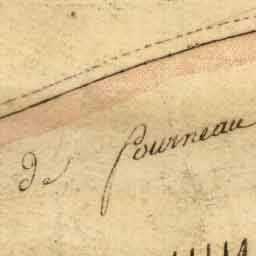 de fourneau